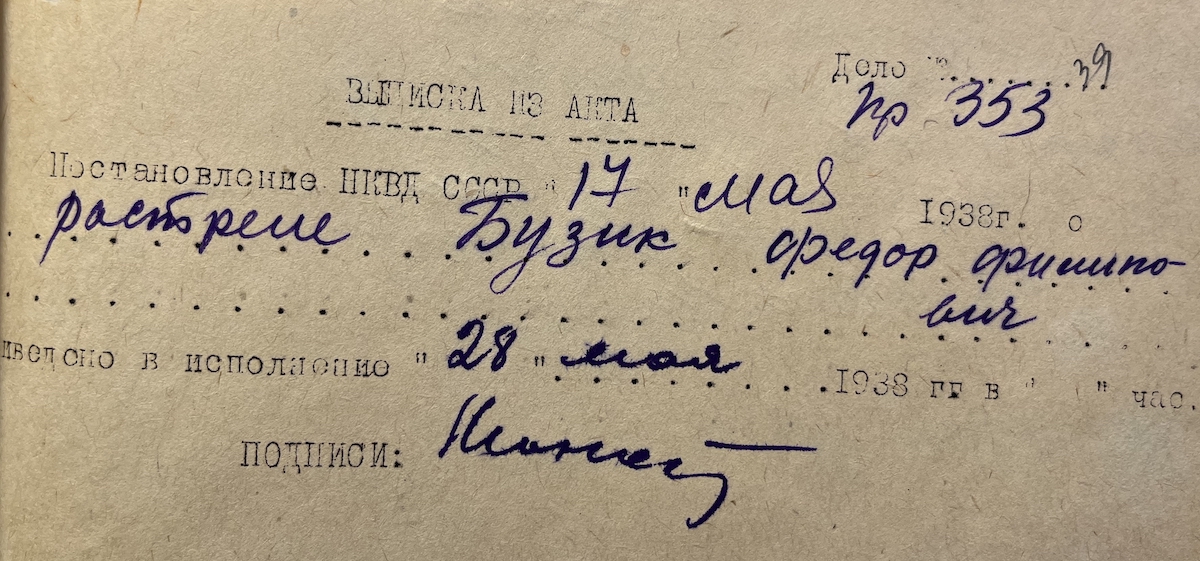 Дело №........39
пр 353
ВЫПИСКА ИЗ АКТА
Постановление НКВД СССР "17" мая 1938г. о
растреле Бузик Федор Филипо-
вич
иведено в исполнение "28" мая 1938 гг в " " час.
ПОДПИСИ: